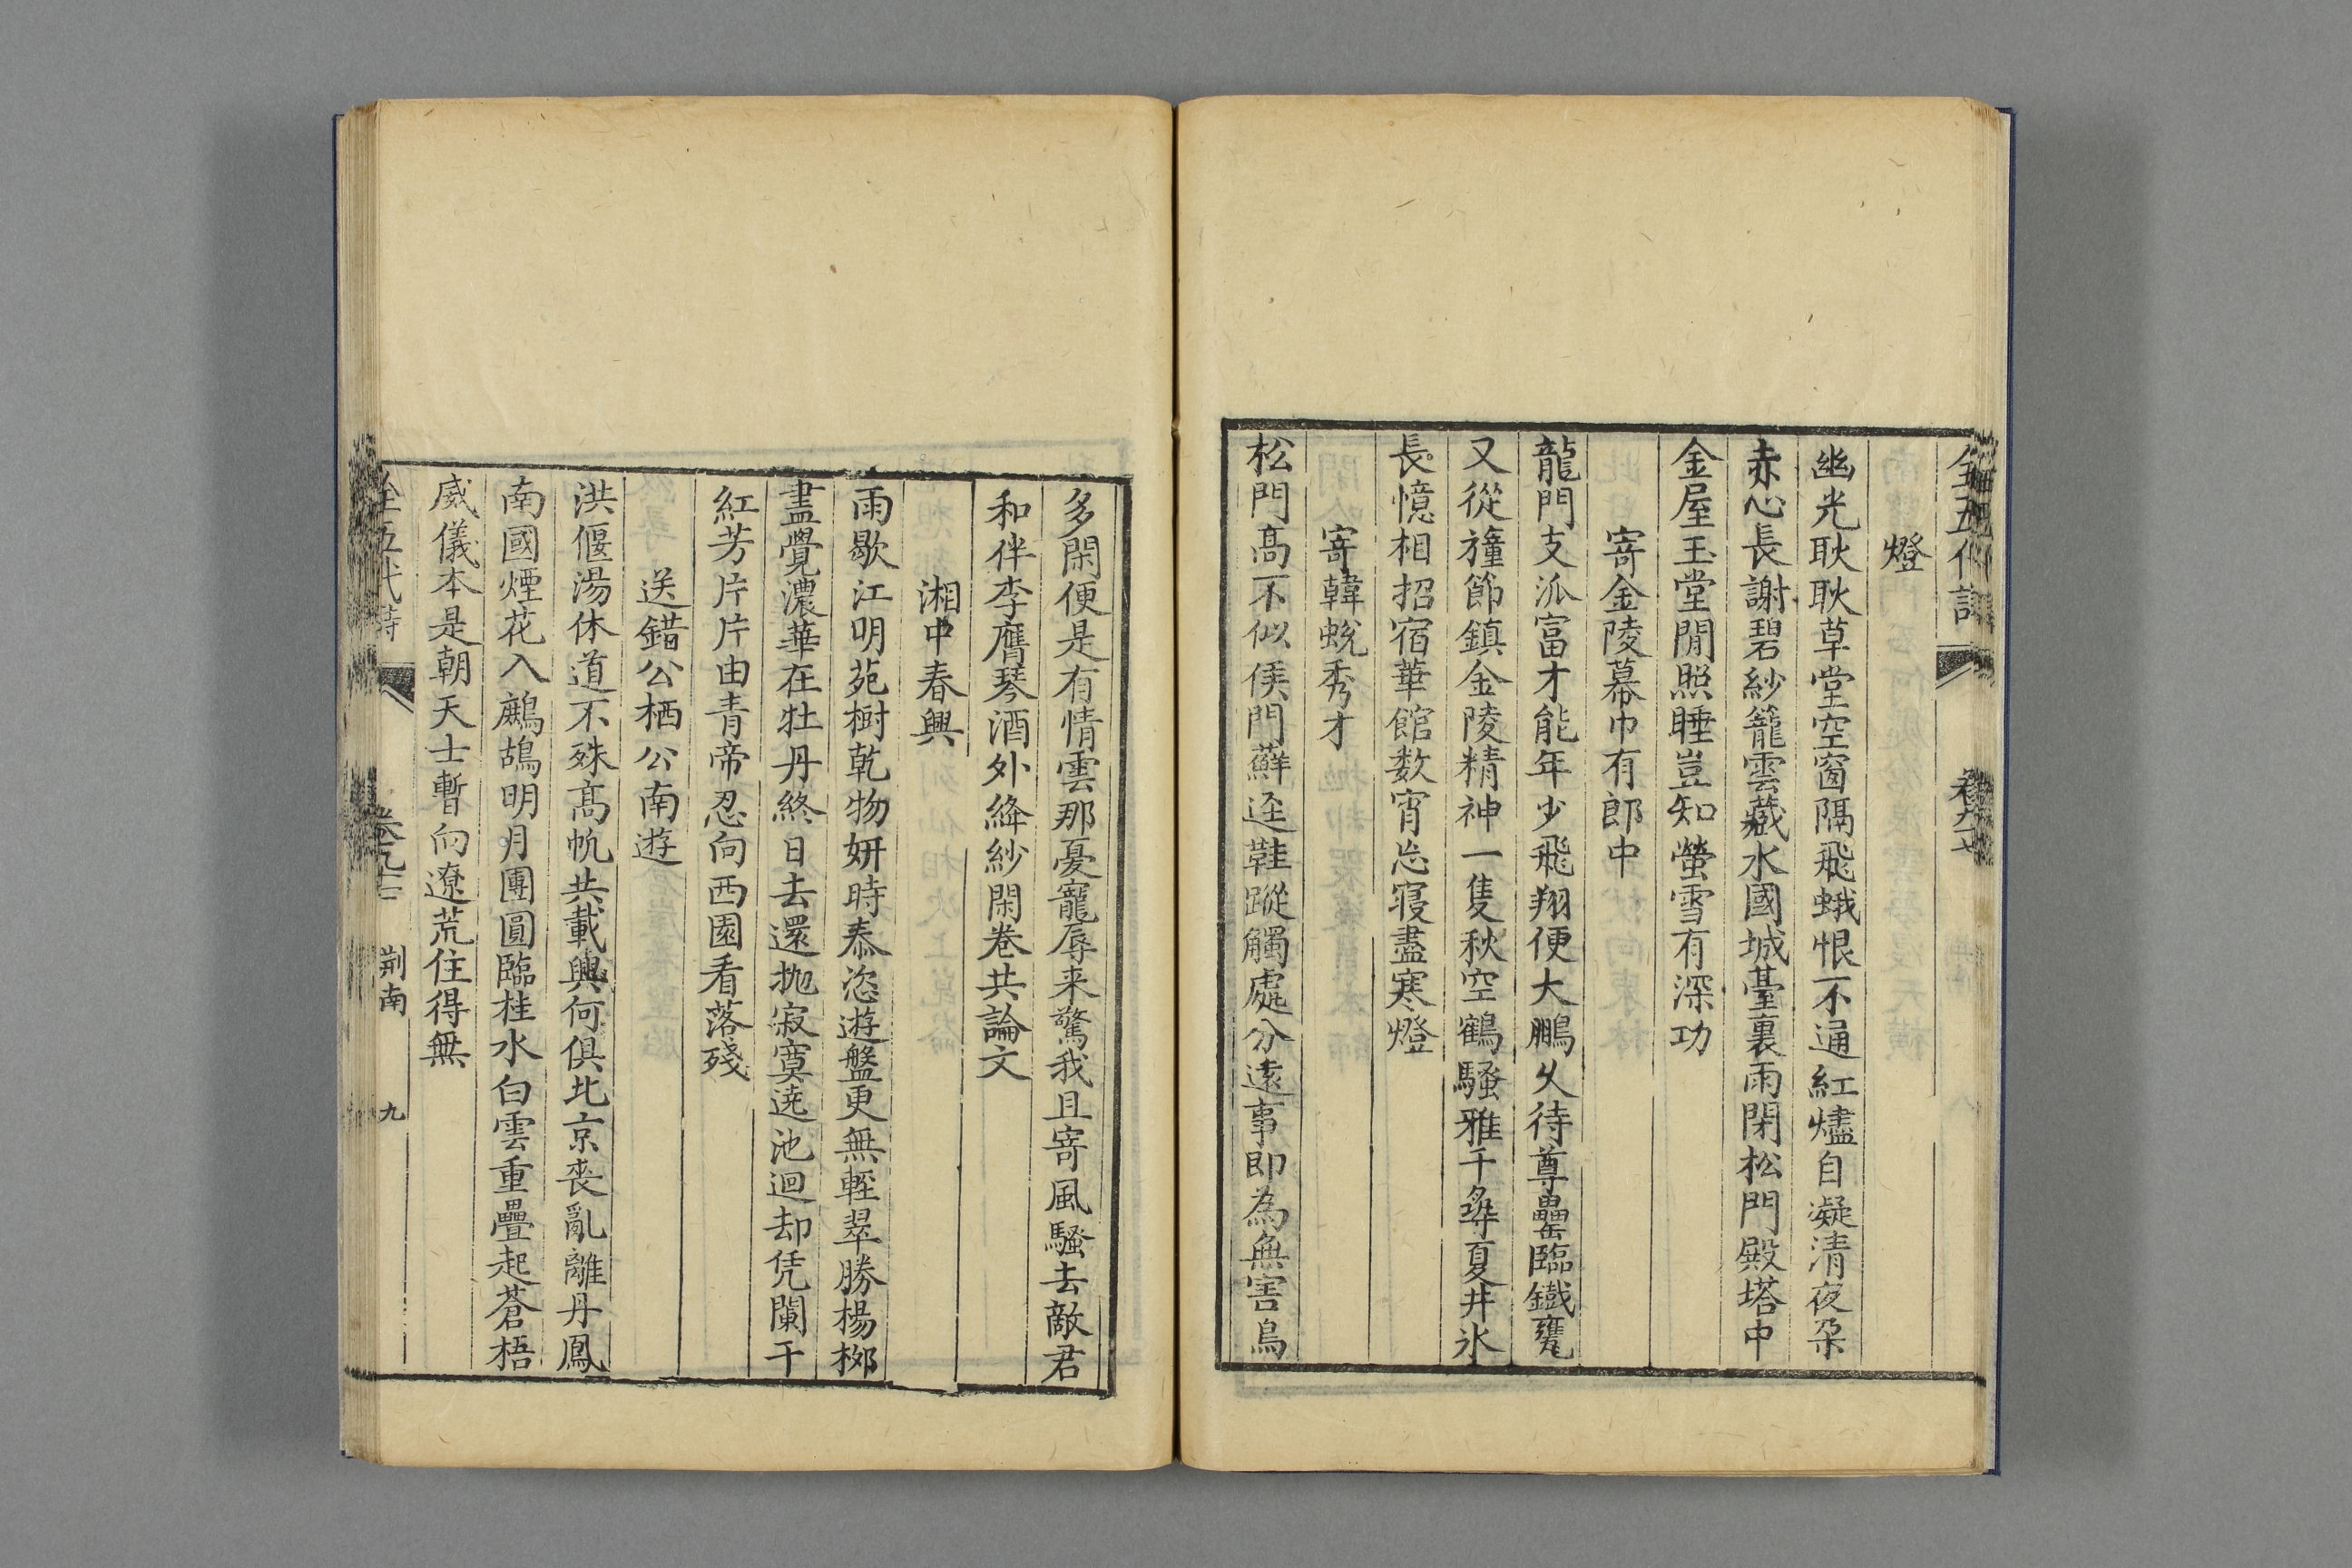 燈
幽光耿耿草堂空窗隔飛蛾恨不通紅燼自凝清夜朶
赤心長謝碧紗籠雲藏水國城臺裏雨閉松門殿塔中
金屋玉堂開照睡豈知螢雪有深功
寄金陵幕中有郎中
龍門支派富才能年少飛翔便大鵬久待尊罍臨鐵甕
又從旌節鎮金陵精神一隻秋空鶴騷雅千尋夏井氷
長憶相招宿華館数宵忘寝盡寒燈
寄韓蛻秀才
松門髙不似侯門蘚逕鞋蹤觸處分逺事即為無害鳥
多閑便是有情雲那憂寵辱来驚我且寄風騷去敵君
和伴李膺琴酒外絳紗閑卷共論文
湘中春興
雨歇江明苑樹乾物妍時泰恣遊盤更無輕翠勝楊栁
盡覺濃華在牡丹終日去還抛寂寞遶池迴却凭闌干
紅芳片片由青帝忍向西園看落殘
送錯公栖公南遊
洪偃湯休道不殊髙帆共載興何俱北京喪亂離丹鳳
南國煙花入鷓鴣明月團圓臨桂水白雲重疊起蒼梧
威儀本是朝天士暫向遼荒住得無
全五代詩
荆南
九